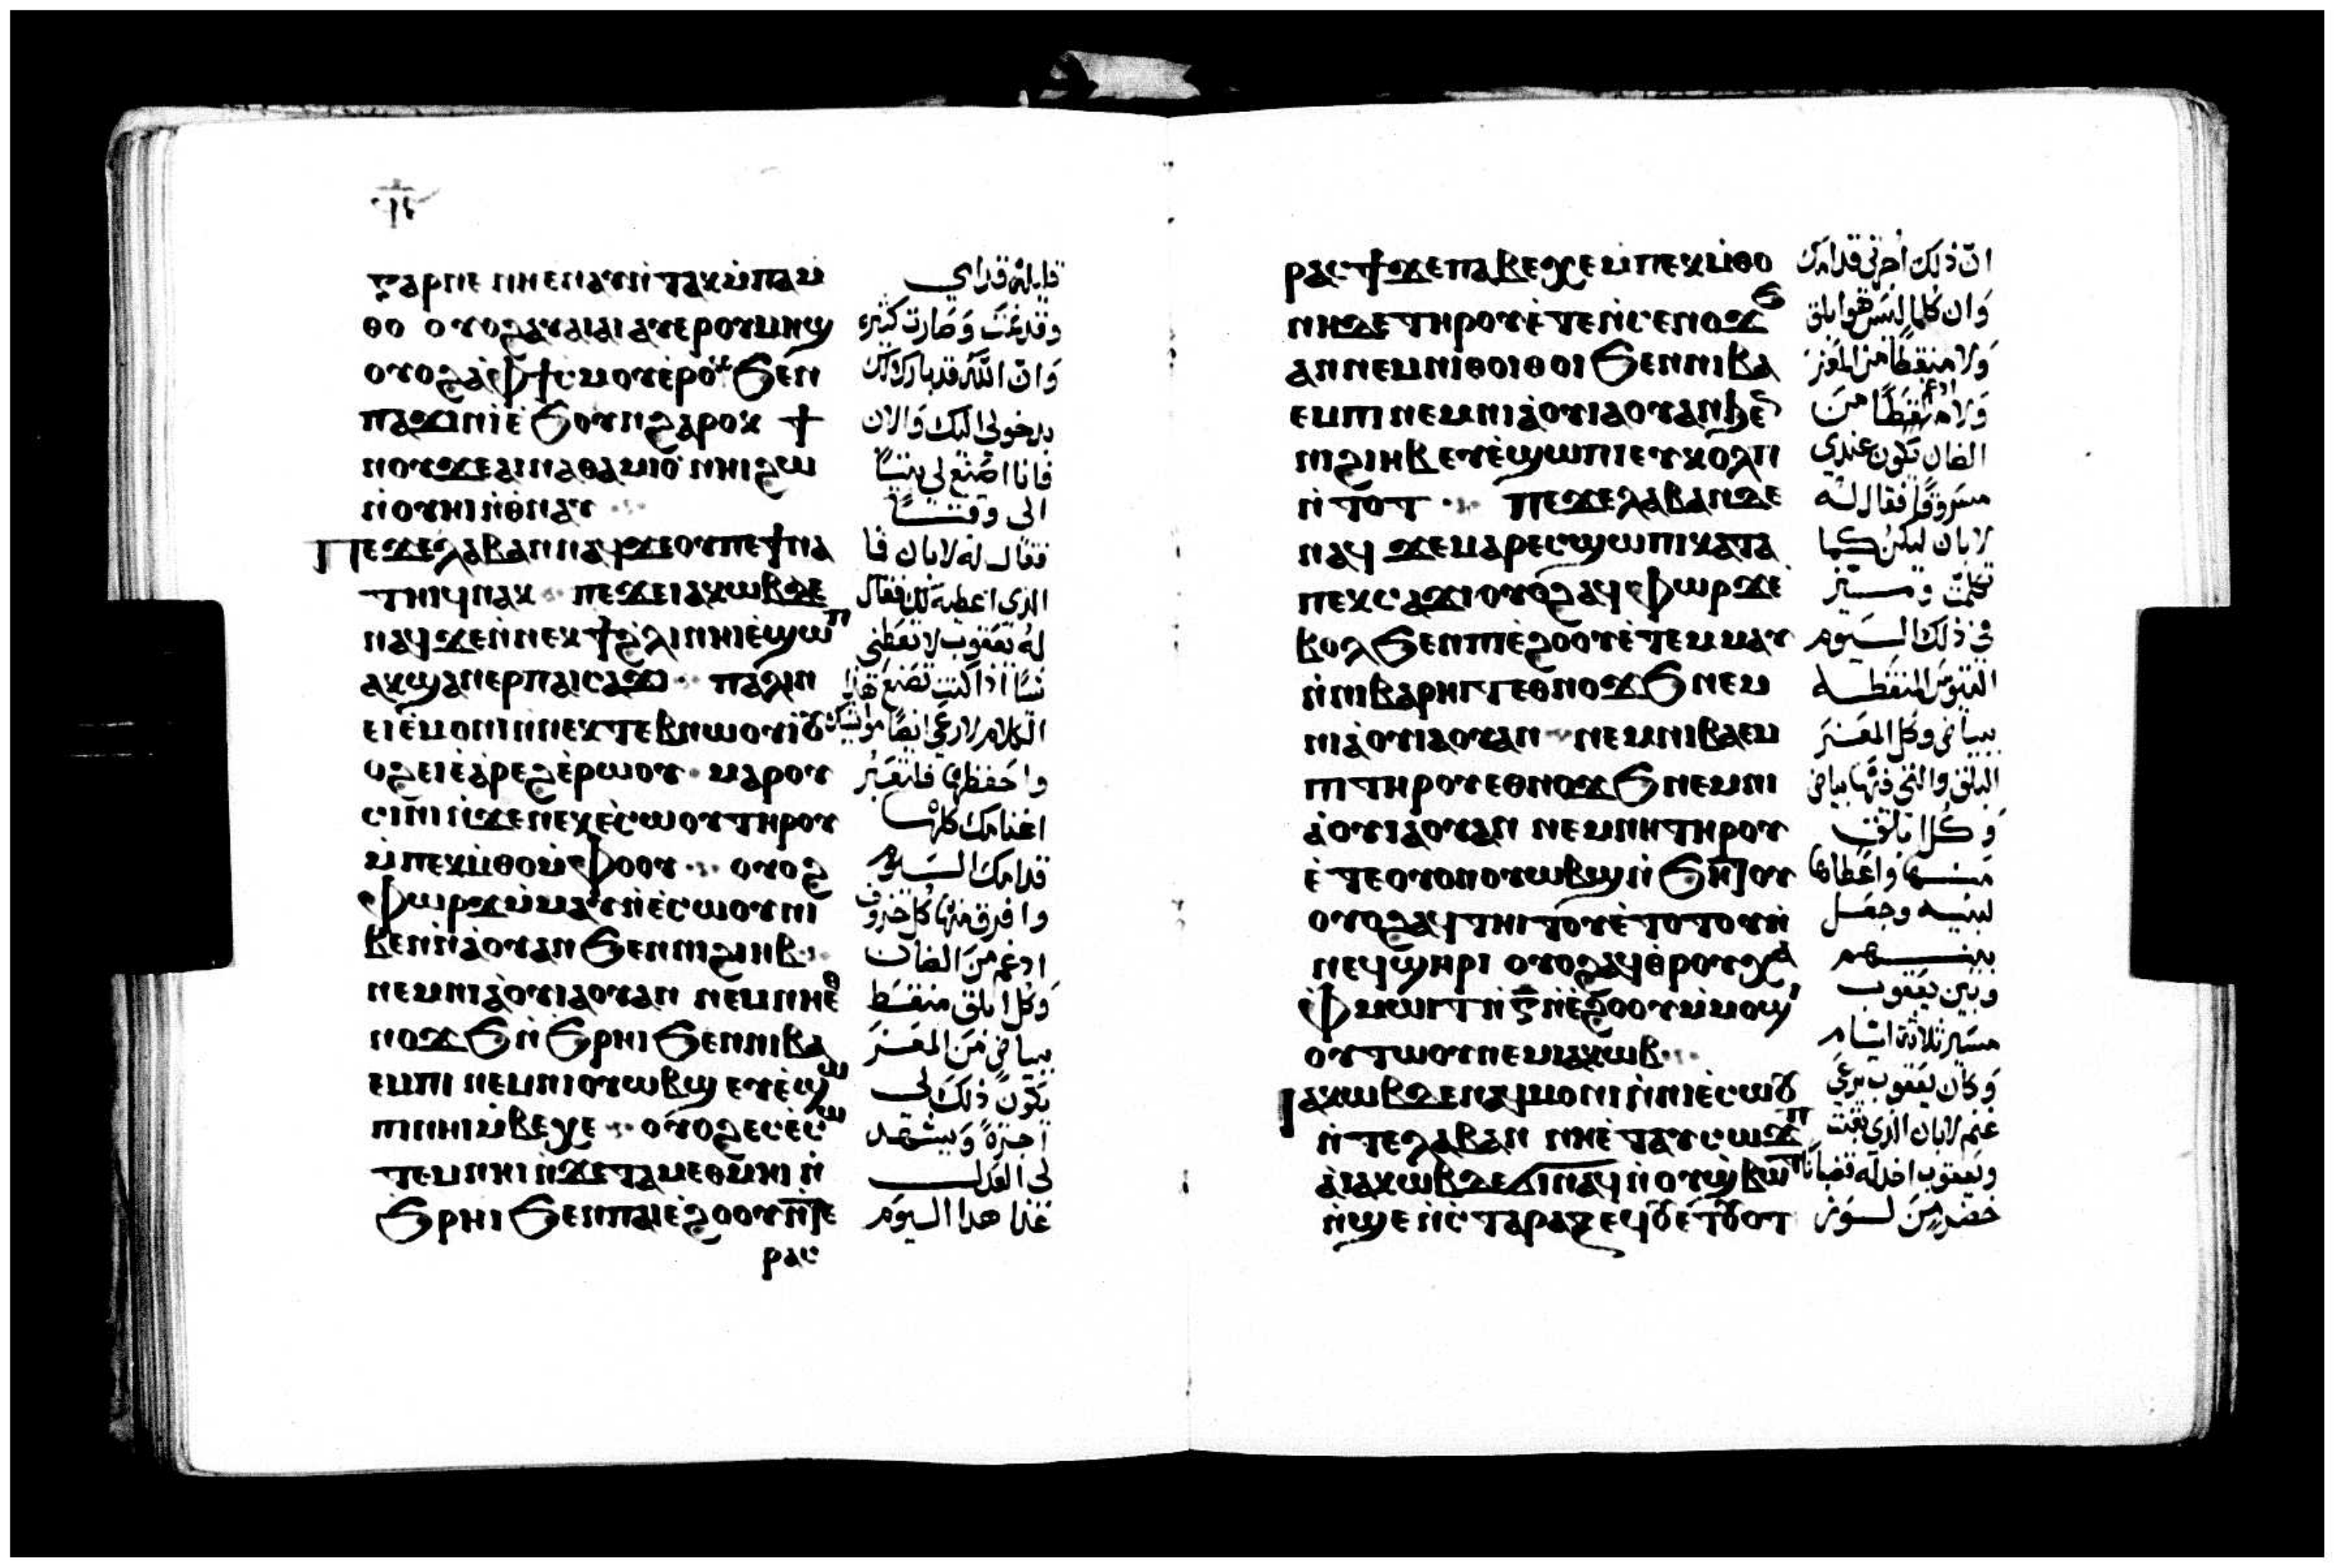 ⲅⲁⲣⲡⲉ ⲛⲏⲉⲛⲁⲩⲛ̇ⲧⲁⲕⲙ̇ⲡⲁⲙ̇
ⲑⲟ ⲟⲩⲟϩⲁⲩⲁⲓⲁⲓ ⲁⲩⲉⲣⲟⲩⲙⲏϣ
ⲟⲩⲟϩⲁ̇ⲫϯⲥⲙⲟⲩⲉ̇ⲣⲟⲕ ϧⲉⲛ
ⲡⲁϫⲓⲛⲓⲉ̇ϧⲟⲩⲛϩⲁⲣⲟⲕ ϯ
ⲛⲟⲩϫⲉⲁⲓⲛⲁⲑⲁⲙⲓⲟ̇ ⲛⲏⲓϩⲱ
ⲛ̇ⲟⲩⲏⲓⲛ̇ⲑⲛⲁⲩ
Ⲡⲉϫⲉⲗⲁⲃⲁⲛⲛⲁϥϫⲉⲟⲩⲡⲉϯⲛⲁ
ⲧⲏⲓϥⲛⲁⲕ ⲡⲉϫⲉⲓⲁⲕⲱⲃⲇⲉ
ⲛⲁϥϫⲉⲛ̇ⲛⲉⲕϯϩ̇ⲗⲓⲛⲏⲓⲉ̇ϣⲱⲡ
ⲁⲕϣⲁⲛⲉⲣⲡⲁⲓⲥⲁϫⲓ ⲡⲁⲗⲓⲛ
ⲉⲓⲉ̇ⲙⲟⲛⲓⲛ̇ⲛⲉⲕⲧⲉⲃⲛⲱⲟⲩⲓ̇
ⲟϩⲉⲓⲉ̇ⲁ̇ⲣⲉϩⲉ̇ⲣⲱⲟⲩ ⲙⲁⲣⲟⲩ
ⲥⲓⲛⲓ ⲛ̇ϫⲉⲛⲉⲕⲉ̇ⲥⲱⲟⲩⲧⲏⲣⲟⲩ
ⲙ̇ⲡⲉⲕⲙ̇ⲑⲟⲙ̇ⲫⲟⲟⲩ ⲟⲩⲟϩ
ⲫⲱⲣϫⲙ̇ⲙⲁⲩⲛ̇ⲉ̇ⲥⲱⲟⲩⲛⲓ
ⲃⲉⲛⲛ̇ⲁ̇ⲟⲩⲁⲛ ϧⲉⲛⲡⲓϩⲓⲏⲃ
ⲛⲉⲙⲛⲓⲁ̇ⲟⲩⲓⲁⲟⲩⲁⲛ ⲛⲉⲙⲛⲏⲉⲑ
ⲛⲟϫϧⲛ̇ϧⲣⲏⲓ ϧⲉⲛⲛⲓⲃⲁ
ⲉⲙⲡⲓ ⲛⲉⲙⲛⲓⲟⲩⲱⲃϣ ⲉⲩⲉ̇ϣⲱ
ⲡⲓⲛⲏⲓⲙ̇ⲃⲉⲭⲉ ⲟⲩⲟϩⲉⲥⲉ̇ⲥⲱ
ⲧⲉⲙⲛⲏⲓ ⲛ̇ϫⲉⲧⲁⲙⲉⲑⲙⲏⲓ ⲛ̇
ϧⲣⲏⲓ ϧⲉⲛⲡⲁⲓⲉ̇ϩⲟⲟⲩⲛ̇ⲧⲉ
ⲣⲁⲥ
قليلة قدامي
وقد نمت وصارت كثيره
وان الله قد باركك
بدخولي اليك والان
فانا اصنع لي بيتا
الى وقتنا
فقال له لابان فا
الذي اعطيه لك فقال
له يعقوب لا تعطني
شيا اذا كنت تصنع هذا
الكلام لارعى ايضا مواشيك
واحفظها فلتعبر
اغنامك كلها
قدامك اليوم
وافرق منها كل خروف
ادغم من الضان
وكل ابلق منقط
ببياض من المعز
يكون ذلك لي
اجرة ويشهد
لي العدل
غدا هدا اليوم
ⲣⲁⲥϯϫⲉⲡⲁⲃⲉⲭⲉⲙ̇ⲡⲉⲕⲙ̇ⲑⲟ
ⲛⲏⲇⲉⲧⲏⲣⲟⲩⲉ̇ⲧⲉⲛ̇ⲥⲉⲛⲟϫϧ
ⲁⲛⲛⲉⲙⲛⲓⲑⲟⲓⲑⲟⲓ ϧⲉⲛⲛⲓⲃⲁ
ⲉⲙⲡⲓ ⲛⲉⲙⲛⲓⲁ̇ⲟⲩⲓⲁⲟⲩⲁⲛϧⲉⲛ
ⲡⲓϩⲓⲏⲃ ⲉⲩⲉ̇ϣⲱⲡⲓⲉⲩⲕⲟⲗⲡ
ⲛ̇ⲧⲟⲧ ⲡⲉϫⲉⲗⲁⲃⲁⲛⲇⲉ
ⲛⲁϥ ϫⲉⲙⲁⲣⲉⲥϣⲱⲡⲓⲕⲁⲧⲁ
ⲡⲉⲕⲥⲁϫⲓⲟⲩⲟϩⲁϥⲫⲱⲣϫⲉ̇
ⲃⲟⲗϧⲉⲛⲡⲓⲉ̇ϩⲟⲟⲩⲉ̇ⲧⲉⲙⲙⲁⲩ
ⲛ̇ⲛⲓⲃⲁⲣⲏⲓⲧ ⲉⲑⲛⲟϫϧ ⲛⲉⲙ
ⲛⲓⲁ̇ⲟⲩⲓⲁⲟⲩⲁⲛ ⲛⲉⲙⲛⲓⲃⲁⲉⲙ
ⲡⲓⲧⲏⲣⲟⲩⲉⲑⲛⲟϫϧⲛⲉⲙⲛⲓ
ⲁ̇ⲟⲩⲓⲁ̇ⲟⲩⲁⲛ ⲛⲉⲙⲛⲏⲧⲏⲣⲟⲩ
ⲉ̇ⲧⲉⲟⲩⲟⲛⲟⲩⲱⲃϣⲛ̇ϧⲏⲧⲟⲩ
ⲟⲩⲟϩⲁϥⲧⲏⲓⲧⲟⲩⲉ̇ⲧⲟⲧⲟⲩⲛ̇
ⲛⲉϥϣⲏⲣⲓ ⲟⲩⲟϩⲁϥⲑⲣⲟⲩⲭⲁ
ⲫⲙⲱⲓⲧⲛ̇ⲅ̅ⲛ̇ⲉ̇ϩⲟⲟⲩⲙ̇ⲙⲟϣⲓ
ⲟⲩⲧⲱⲟⲩⲛⲉⲙⲓⲁⲕⲱⲃ
Ⲓⲁⲕⲱⲃⲇⲉⲛⲁϥⲙⲟⲛⲓⲛ̇ⲛⲓⲉ̇ⲥⲱⲟⲩ
ⲛ̇ⲧⲉⲗⲁⲃⲁⲛ ⲛⲏⲉ̇ⲧⲁⲩⲥⲱϫⲡ
ⲁ̇ⲓⲁⲕⲱⲃⲇⲉϭⲓⲛⲁϥⲛ̇ⲟⲩϣ̇ⲃⲱⲧ
ⲛ̇ϣⲉ ⲛ̇ⲥ̇ⲧⲁⲣⲁⲝ ⲉϥⲟⲩⲉⲧⲟⲩⲟⲧ
ان ذلك اجرتي قدامك
وان كلما ليس هو ابلق
ولا منقطا من المعز
ولا منقطا من
الضان يكون عندي
مسروقا فقال له
لابان ليكن كما
تكلمت وميز
في ذلك اليوم
التيوس المنقطه
ببياض وكل المعز
البلق والتي فيها بياض
وكل ابلق
منها واعطاها
لبنيه وجعل
بينهم
وبين يعقوب
مسير ثلاثة ايام
وكان يعقوب يرعى
غنم لابان الذي بقيت
ويعقوب اخد له قضبانا
خضر من لوز